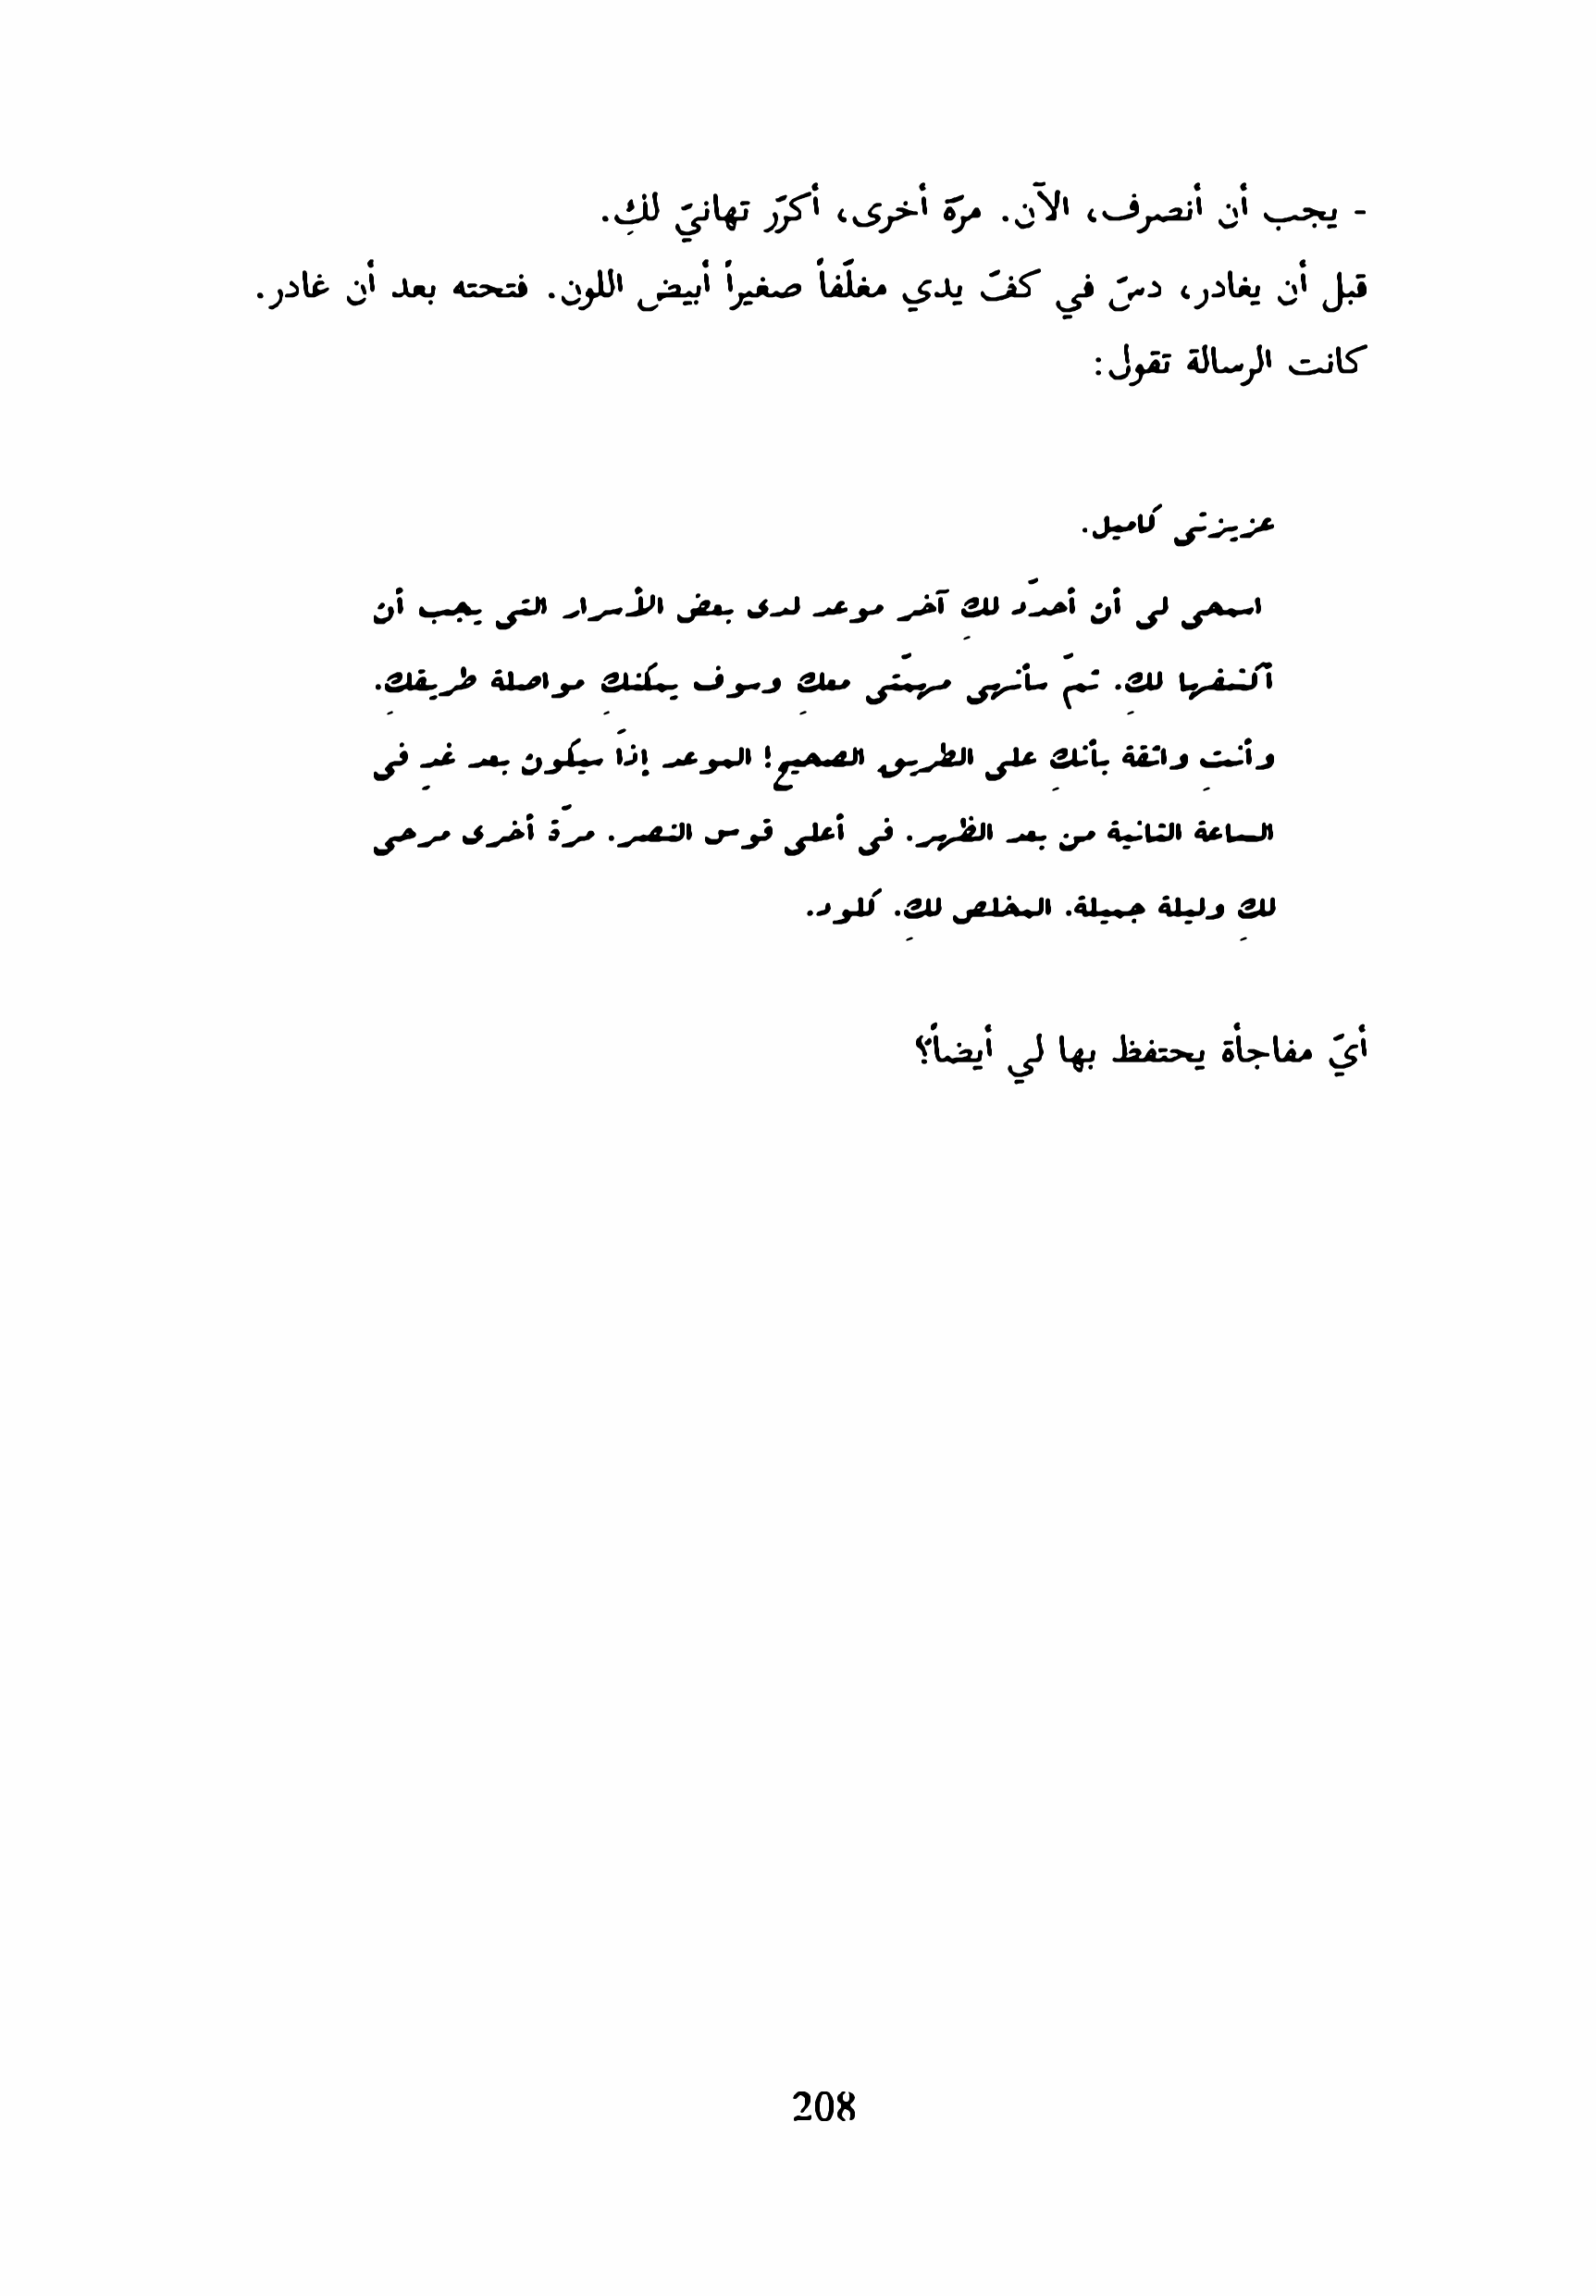 - يجب أن أنصرف، الآن. مرّة أخرى، أكرّر تهانيّ لكِ.
قبل أن يغادر، دسّ في كفّ يدي مغلّفاً صغيراً أبيض اللون. فتحته بعد أن غادر.
كانت الرسالة تقول:
عزيزتي كاميل.
اسمحي لي أن أحدّد لكِ آخر موعد لدى بعض الأسرار التي يجب أن
أكشفها لكِ. ثمّ سأنهي مهمّتي معكِ وسوف يمكنكِ مواصلة طريقكِ.
وأنتِ واثقة بأنكِ على الطريق الصحيح! الموعد إذاً سيكون بعد غدٍ في
الساعة الثانية من بعد الظهر. في أعلى قوس النصر. مرّة أخرى مرحى
لكِ وليلة جميلة. المخلص لكِ. كلود.
أيّ مفاجأة يحتفظ بها لي أيضاً؟
208